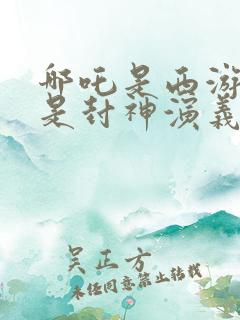 哪吒是西游
是封神演義
吴正方
未经同意禁止转载